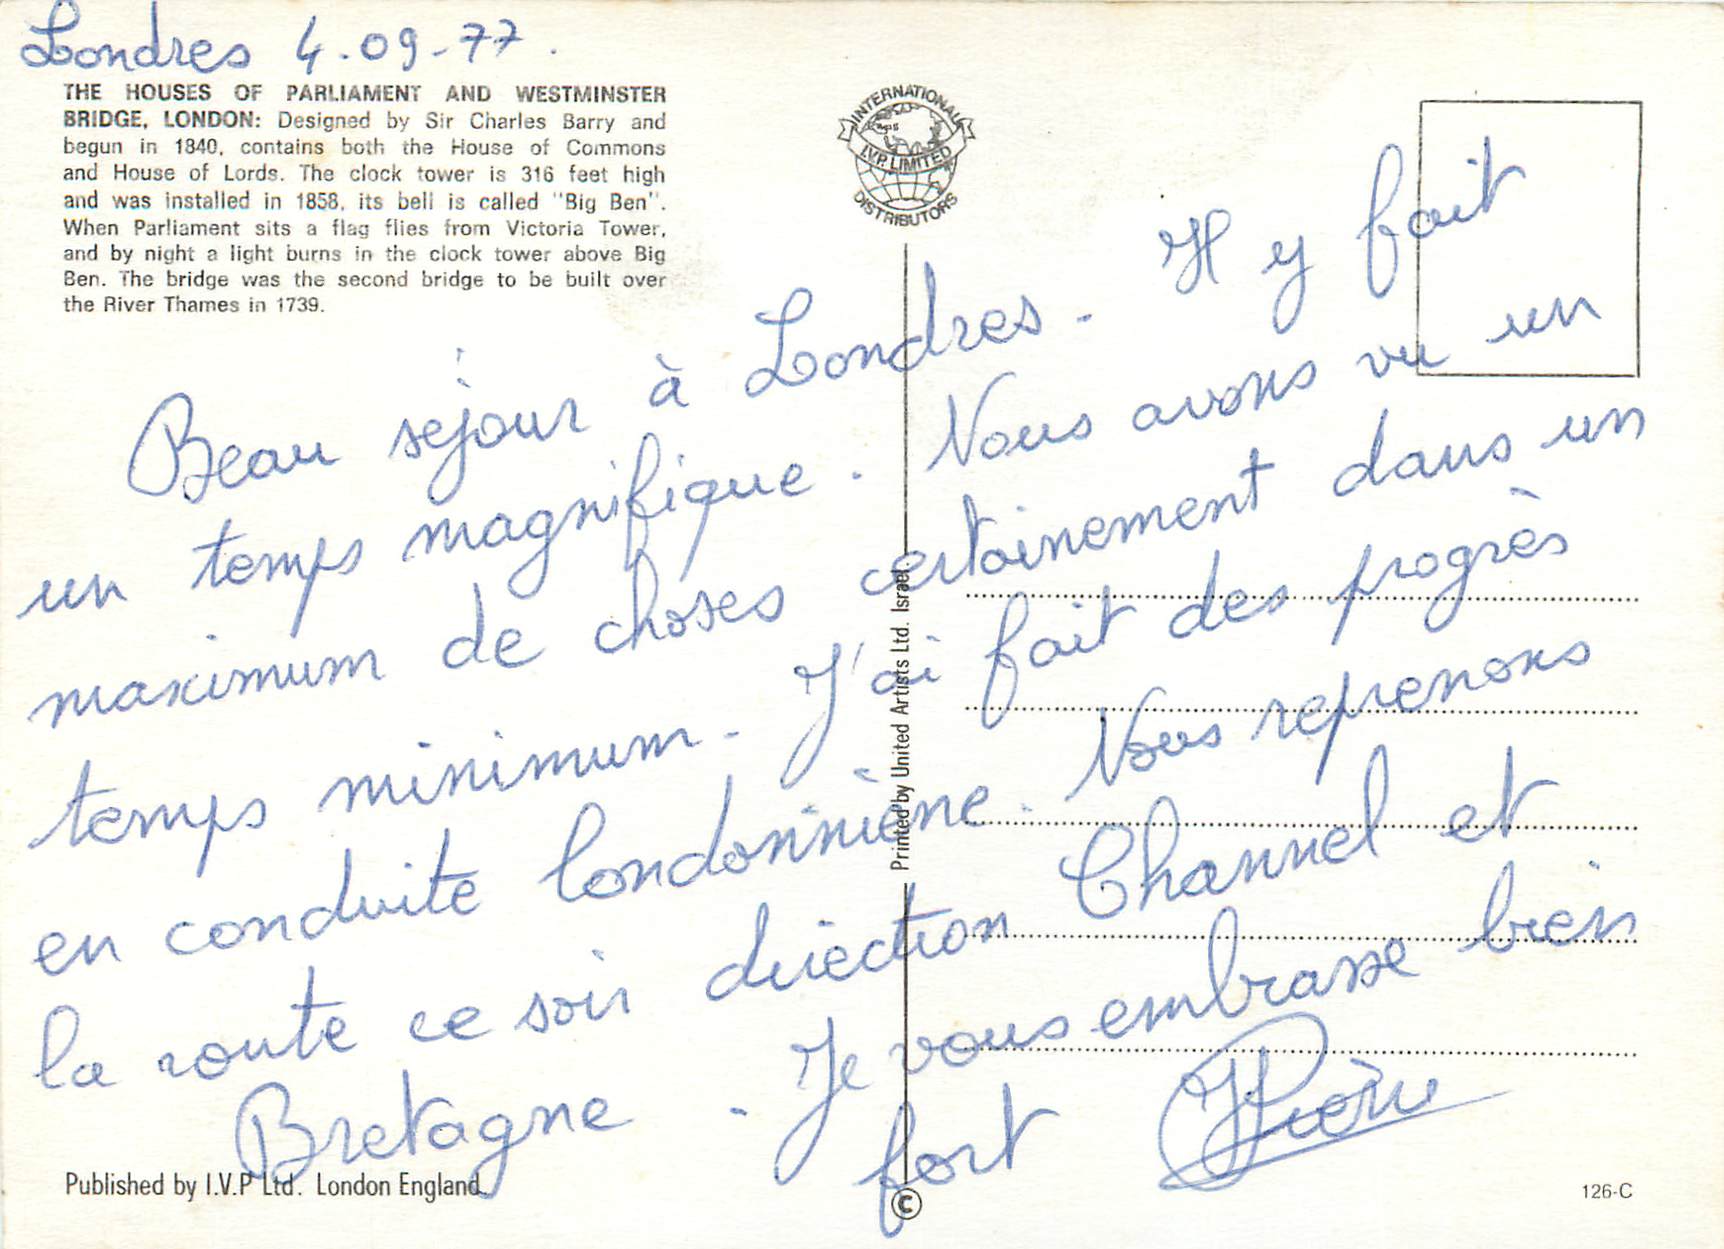 Londres 4.09-77.
THE HOUSES OF PARLIAMENT AND WESTMINSTER
BRIDGE, LONDON: Designed by Sir Charles Barry and
begun in 1840, contains both the House of Commons
and House of Lords. The clock tower is 316 feet high
and was installed in 1858, its bell is called "Big Ben".
When Parliament sits a flag flies from Victoria Tower,
and by night a light burns in the clock tower above Big
Ben. The bridge was the second bridge to be built over
the River Thames in 1739.
INTERNATIONAL
I.V.P. LIMITED
DISTRIBUTORS
Beau séjour à Londres. Il y fait
un temps magnifique. Nous avons vu un
maximum de choses certainement dans un
temps minimum. J'ai fait des progrès
en conduite londonnière. Nous reprenons
la route ce soir direction Channel et
Bretagne. Je vous embrasse bien
fort
Printed by United Artists Ltd. Israel.
Published by I.V.P Ltd. London England.
©
126-C